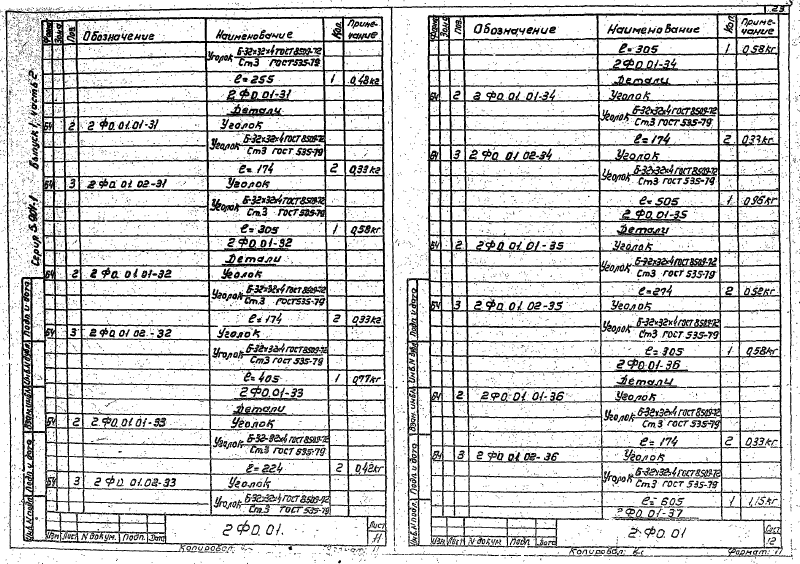 Серия 5.904-1 Выпуск 1, часть 2
Форм. Зона Поз. Обозначение Наименование Кол. Примечание
Уголок Б-32×32×4 ГОСТ 8509-72
Ст3 ГОСТ 535-79
ℓ= 255 1 0,48кг
2ФО.01-31
Детали
БЧ 2 2ФО.01.01-31 Уголок
Уголок Б-32×32×4 ГОСТ 8509-72
Ст3 ГОСТ 535-79
ℓ= 174 2 0,33кг
БЧ 3 2ФО.01.02-31 Уголок
Уголок Б-32×32×4 ГОСТ 8509-72
Ст3 ГОСТ 535-79
ℓ= 305 1 0,58кг
2ФО.01-32
Детали
БЧ 2 2ФО.01.01-32 Уголок
Уголок Б-32×32×4 ГОСТ 8509-72
Ст3 ГОСТ 535-79
ℓ= 174 2 0,33кг
БЧ 3 2ФО.01.02-32 Уголок
Уголок Б-32×32×4 ГОСТ 8509-72
Ст3 ГОСТ 535-79
ℓ= 405 1 0,77кг
2ФО.01-33
Детали
БЧ 2 2ФО.01.01-33 Уголок
Уголок Б-32×32×4 ГОСТ 8509-72
Ст3 ГОСТ 535-79
ℓ= 224 2 0,42кг
БЧ 3 2ФО.01.02-33 Уголок
Уголок Б-32×32×4 ГОСТ 8509-72
Ст3 ГОСТ 535-79
Инв.N подл. Подп. и дата Взам.инв.N Инв.N дубл. Подп. и дата
Изм Лист N докум. Подп. Дата
2ФО.01.
Лист
11
Копировал: Формат: 11
23
Форм. Зона Поз. Обозначение Наименование Кол. Примечание
ℓ= 305 1 0,58кг
2ФО.01-34
Детали
БЧ 2 2ФО.01.01-34 Уголок
Уголок Б-32×32×4 ГОСТ 8509-72
Ст3 ГОСТ 535-79
ℓ= 174 2 0,33кг
БЧ 3 2ФО.01.02-34 Уголок
Уголок Б-32×32×4 ГОСТ 8509-72
Ст3 ГОСТ 535-79
ℓ= 505 1 0,96кг
2ФО.01-35
Детали
БЧ 2 2ФО.01.01-35 Уголок
Уголок Б-32×32×4 ГОСТ 8509-72
Ст3 ГОСТ 535-79
ℓ= 274 2 0,52кг
БЧ 3 2ФО.01.02-35 Уголок
Уголок Б-32×32×4 ГОСТ 8509-72
Ст3 ГОСТ 535-79
ℓ= 305 1 0,58кг
2ФО.01-36
Детали
БЧ 2 2ФО.01.01-36 Уголок
Уголок Б-32×32×4 ГОСТ 8509-72
Ст3 ГОСТ 535-79
ℓ= 174 2 0,33кг
БЧ 3 2ФО.01.02-36 Уголок
Уголок Б-32×32×4 ГОСТ 8509-72
Ст3 ГОСТ 535-79
ℓ= 605 1 1,15кг
2ФО.01-37
Инв.N подл. Подп. и дата Взам.инв.N Инв.N дубл. Подп. и дата
Изм. Лист N докум. Подп. Дата
2ФО.01
Лист
12
Копировал: Формат: 11